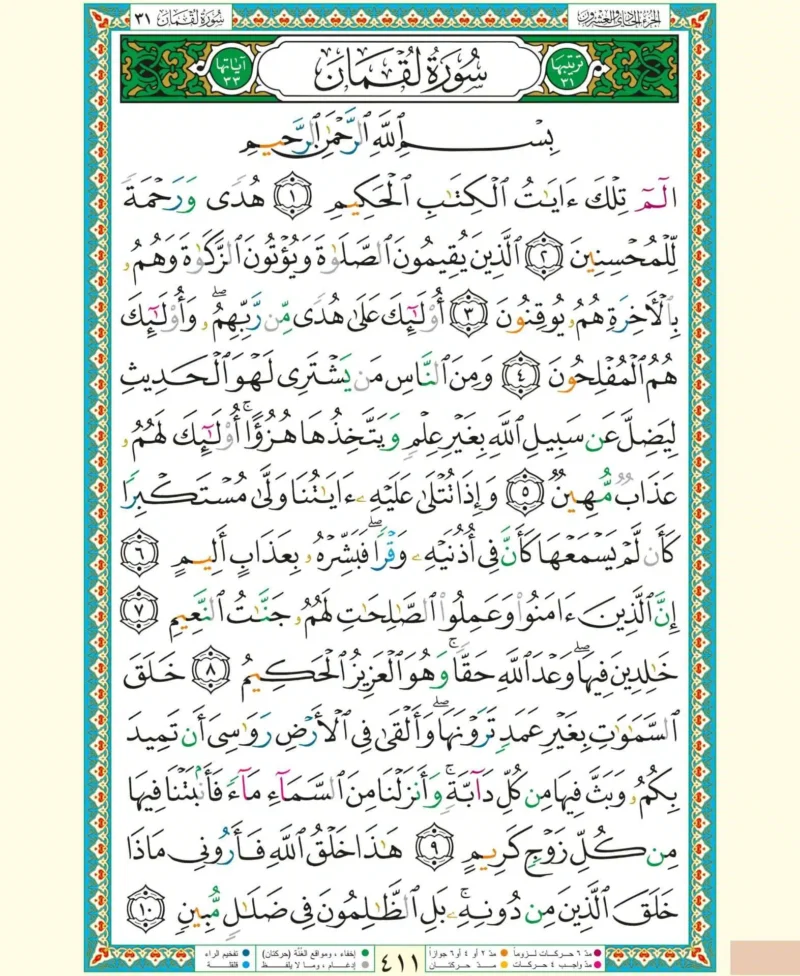 الجزء الحادي والعشرون
سُورَةُ لُقْمَان ٣١
ترتيبها ٣١
سُورَةُ لُقْمَانَ
آياتها ٣٣
بِسْمِ ٱللَّهِ ٱلرَّحْمَٰنِ ٱلرَّحِيمِ
الٓمٓ تِلْكَ ءَايَٰتُ ٱلْكِتَٰبِ ٱلْحَكِيمِ ١ هُدًى وَرَحْمَةً
لِّلْمُحْسِنِينَ ٢ ٱلَّذِينَ يُقِيمُونَ ٱلصَّلَوٰةَ وَيُؤْتُونَ ٱلزَّكَوٰةَ وَهُمُۥ
بِٱلْأَخِرَةِ هُمُۥ يُوقِنُونَ ٣ أُوْلَٰٓئِكَ عَلَىٰ هُدًى مِّن رَّبِّهِمُۥۖ وَأُوْلَٰٓئِكَ
هُمُ ٱلْمُفْلِحُونَ ٤ وَمِنَ ٱلنَّاسِ مَن يَشْتَرِى لَهْوَ ٱلْحَدِيثِ
لِيَضِلَّ عَن سَبِيلِ ٱللَّهِ بِغَيْرِ عِلْمٍ وَيَتَّخِذُهَا هُزُؤًاۚ أُوْلَٰٓئِكَ لَهُمُۥ
عَذَابٌ مُّهِينٌ ٥ وَإِذَا تُتْلَىٰ عَلَيْهِۦ ءَايَٰتُنَا وَلَّىٰ مُسْتَكْبِرًا
كَأَن لَّمْ يَسْمَعْهَا كَأَنَّ فِى أُذُنَيْهِۦ وَقْرًاۖ فَبَشِّرْهُۥ بِعَذَابٍ أَلِيمٍ ٦
إِنَّ ٱلَّذِينَ ءَامَنُواْ وَعَمِلُواْ ٱلصَّٰلِحَٰتِ لَهُمُۥ جَنَّٰتُ ٱلنَّعِيمِ ٧
خَٰلِدِينَ فِيهَاۖ وَعْدَ ٱللَّهِ حَقًّاۚ وَهُوَ ٱلْعَزِيزُ ٱلْحَكِيمُ ٨ خَلَقَ
ٱلسَّمَٰوَٰتِ بِغَيْرِ عَمَدٍ تَرَوْنَهَاۖ وَأَلْقَىٰ فِى ٱلْأَرْضِ رَوَٰسِىَ أَن تَمِيدَ
بِكُمُۥ وَبَثَّ فِيهَا مِن كُلِّ دَآبَّةٍۚ وَأَنزَلْنَا مِنَ ٱلسَّمَآءِ مَآءً فَأَنۢبَتْنَا فِيهَا
مِن كُلِّ زَوْجٍ كَرِيمٍ ٩ هَٰذَا خَلْقُ ٱللَّهِ فَأَرُونِى مَاذَا
خَلَقَ ٱلَّذِينَ مِن دُونِهِۦۚ بَلِ ٱلظَّٰلِمُونَ فِى ضَلَٰلٍ مُّبِينٍ ١٠
مدّ ٦ حركات لزوماً مدّ ٢ أو ٤ أو ٦ جوازاً
مدّ واجب ٤ حركات مدّ حركتان
٤١١
إخفاء، ومواقع الغُنَّة (حركتان) تفخيم الراء
إدغام، وما لا يُلفظ قلقلة